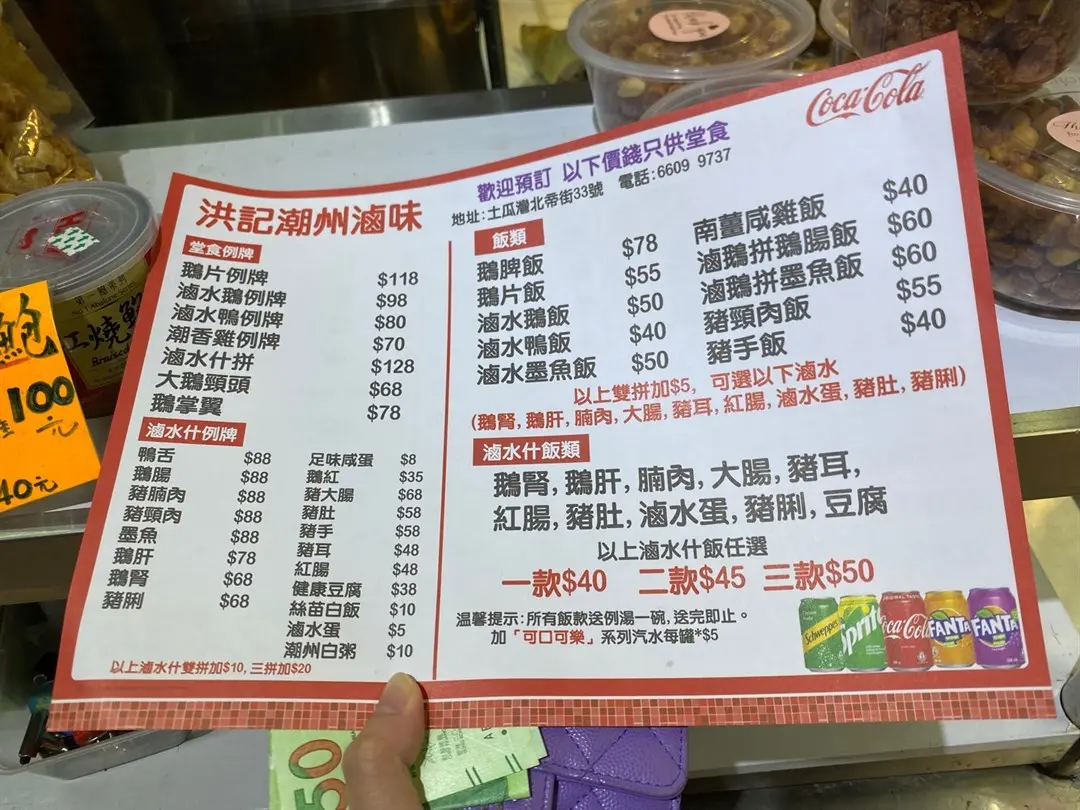 Coca-Cola
歡迎預訂 以下價錢只供堂食
地址:土瓜灣北帝街33號 電話:6609 9737
洪記潮州滷味
堂食例牌
鵝片例牌 $118
滷水鵝例牌 $98
滷水鴨例牌 $80
潮香雞例牌 $70
滷水什拼 $128
大鵝頸頭 $68
鵝掌翼 $78
滷水什例牌
鴨舌 $88
鵝腸 $88
豬腩肉 $88
豬頸肉 $88
墨魚 $88
鵝肝 $78
鵝腎 $68
豬脷 $68
足味咸蛋 $8
鵝紅 $35
豬大腸 $68
豬肚 $58
豬手 $58
豬耳 $48
紅腸 $48
健康豆腐 $38
絲苗白飯 $10
滷水蛋 $5
潮州白粥 $10
以上滷水什雙拼加$10, 三拼加$20
飯類
鵝脾飯 $78
鵝片飯 $55
滷水鵝飯 $50
滷水鴨飯 $40
滷水墨魚飯 $50
南薑咸雞飯 $40
滷鵝拼鵝腸飯 $60
滷鵝拼墨魚飯 $60
豬頸肉飯 $55
豬手飯 $40
以上雙拼加$5, 可選以下滷水
(鵝腎, 鵝肝, 腩肉, 大腸, 豬耳, 紅腸, 滷水蛋, 豬肚, 豬脷)
滷水什飯類
鵝腎, 鵝肝, 腩肉, 大腸, 豬耳,
紅腸, 豬肚, 滷水蛋, 豬脷, 豆腐
以上滷水什飯任選
一款$40 二款$45 三款$50
溫馨提示:所有飯款送例湯一碗, 送完即止。
加「可口可樂」系列汽水每罐*$5
Schweppes
Sprite
Coca-Cola
FANTA
FANTA
鮑
100
元
40元
50